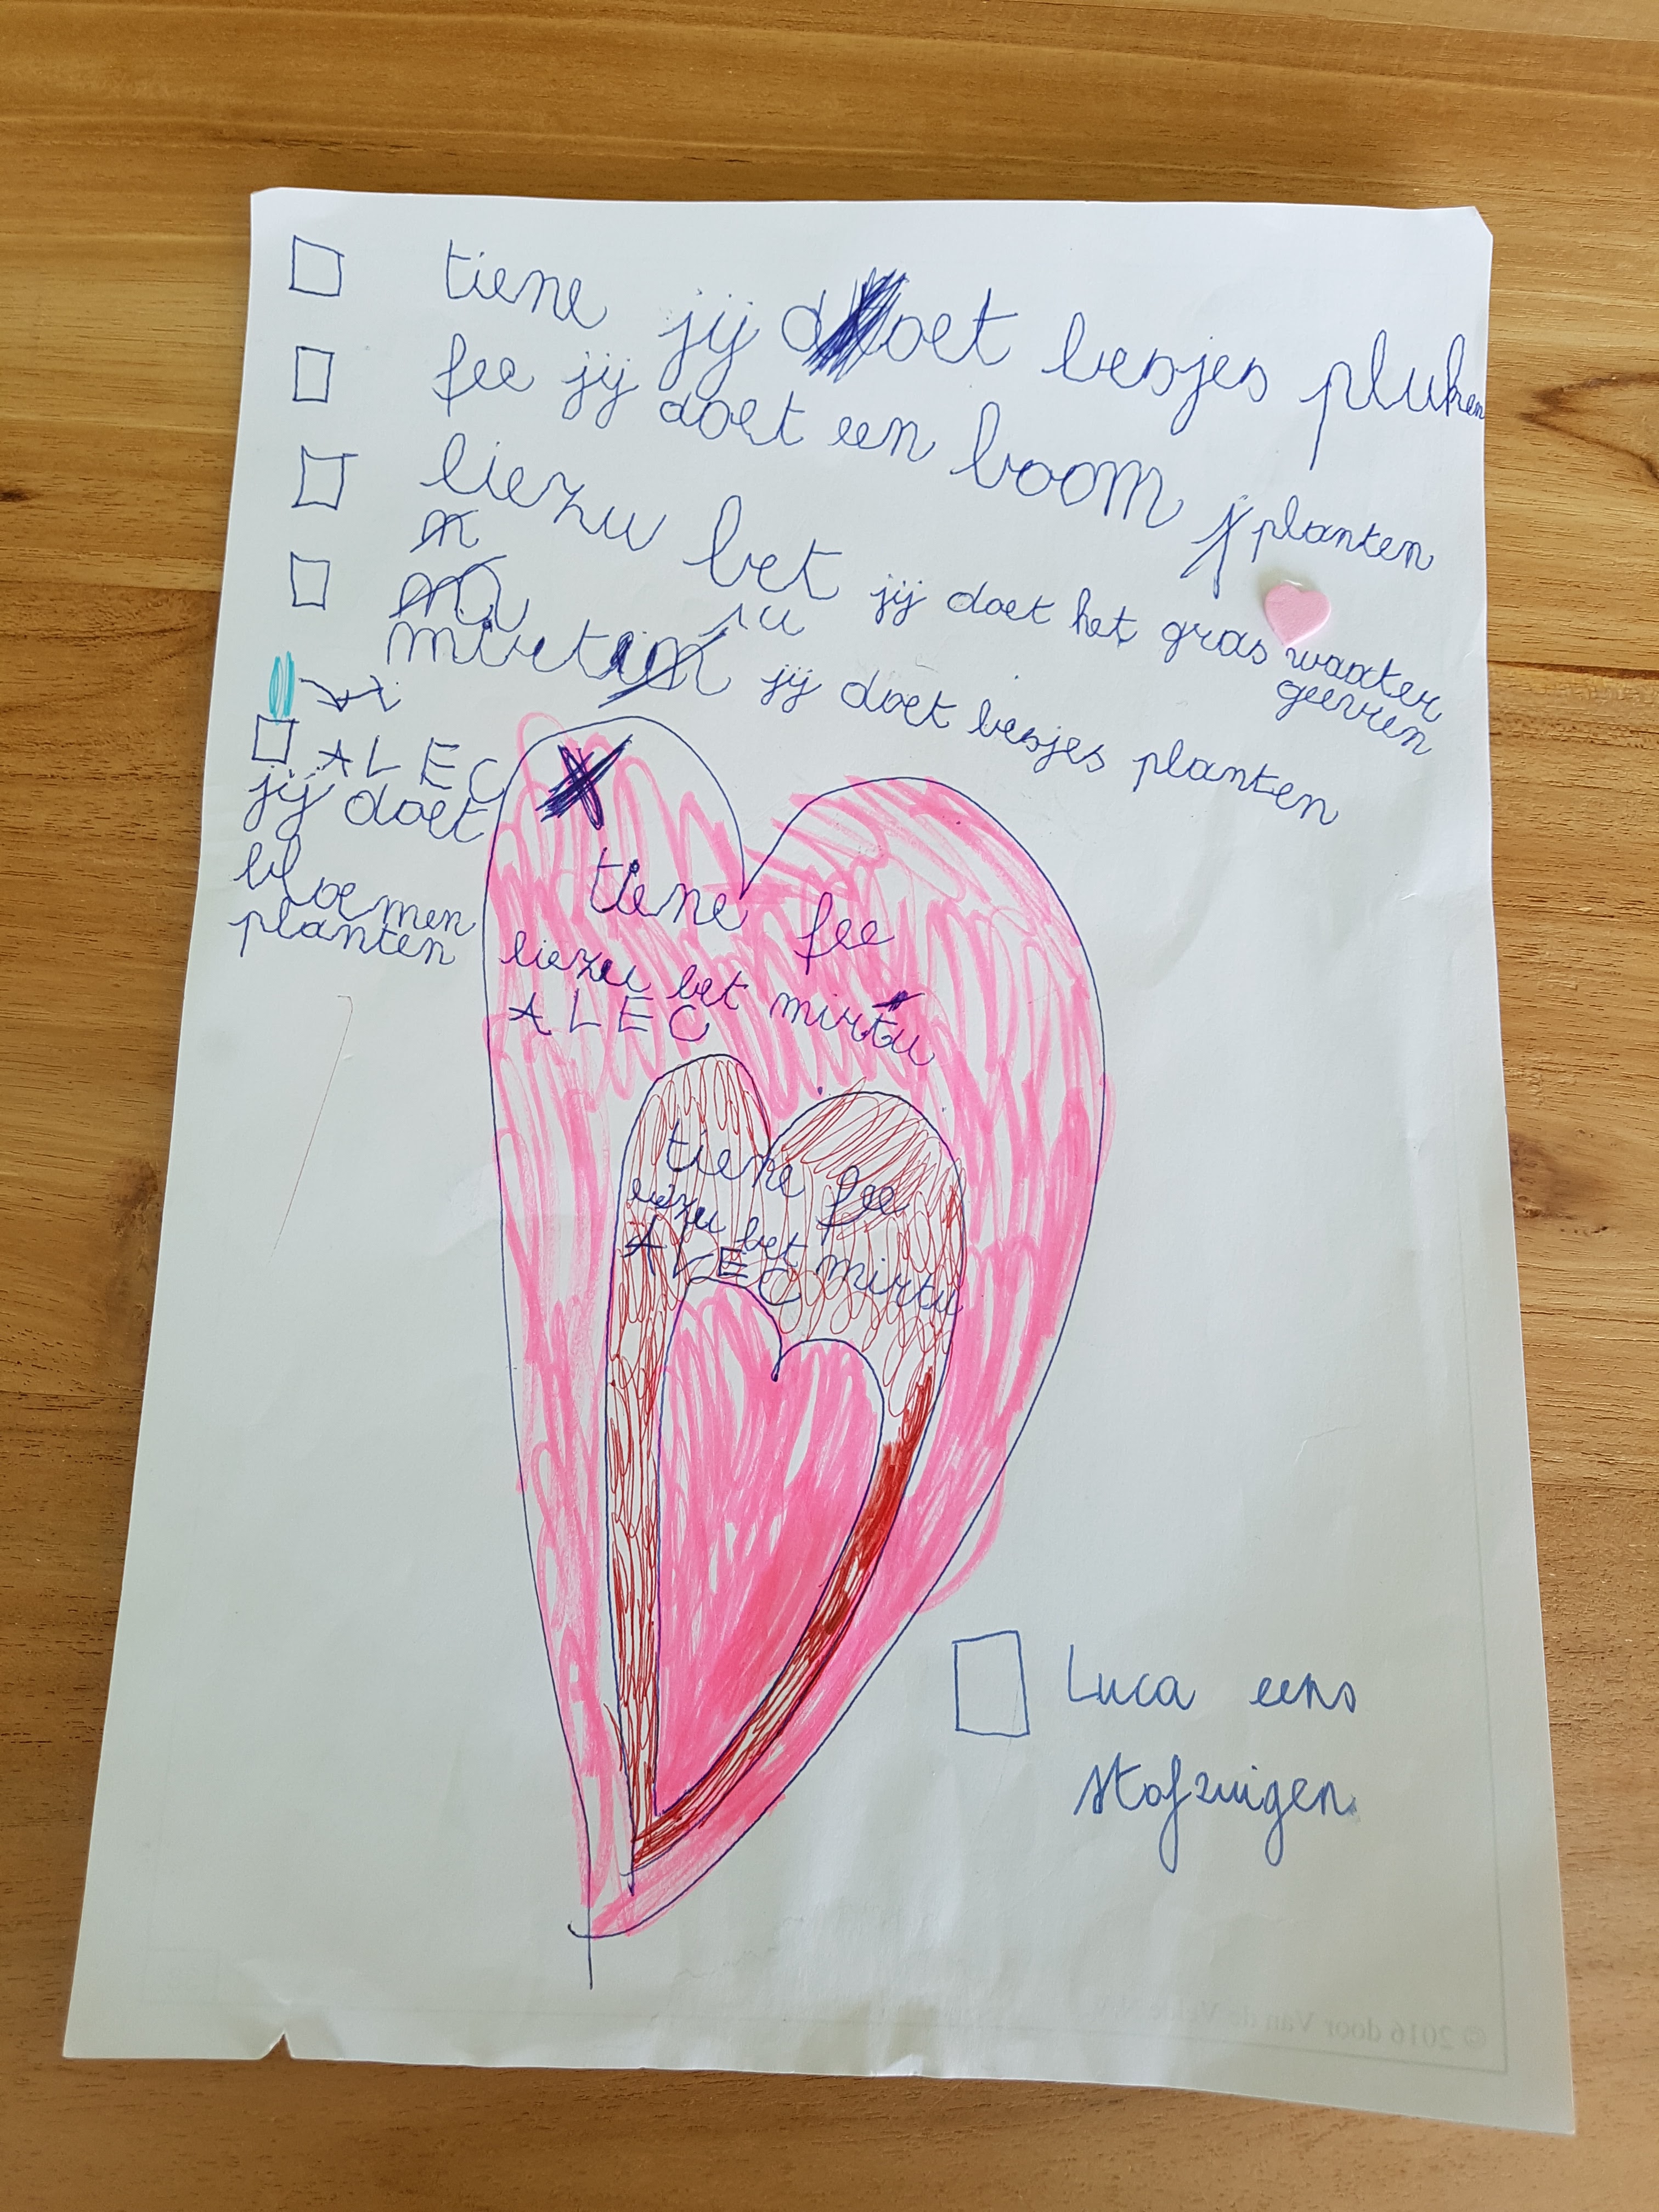 tiene jij doet besjes pluken
fee jij doet een boom planten
liezu bet jij doet het gras waater
geevren
mirtu jij doet besjes planten
ALEC
jij doet
bloemen
planten
tiene fee
liezu bet mirtu
ALEC
tiene fee
liezu bet mirtu
ALEC
Luca eens
stofzuigen
© 2016 door Van de